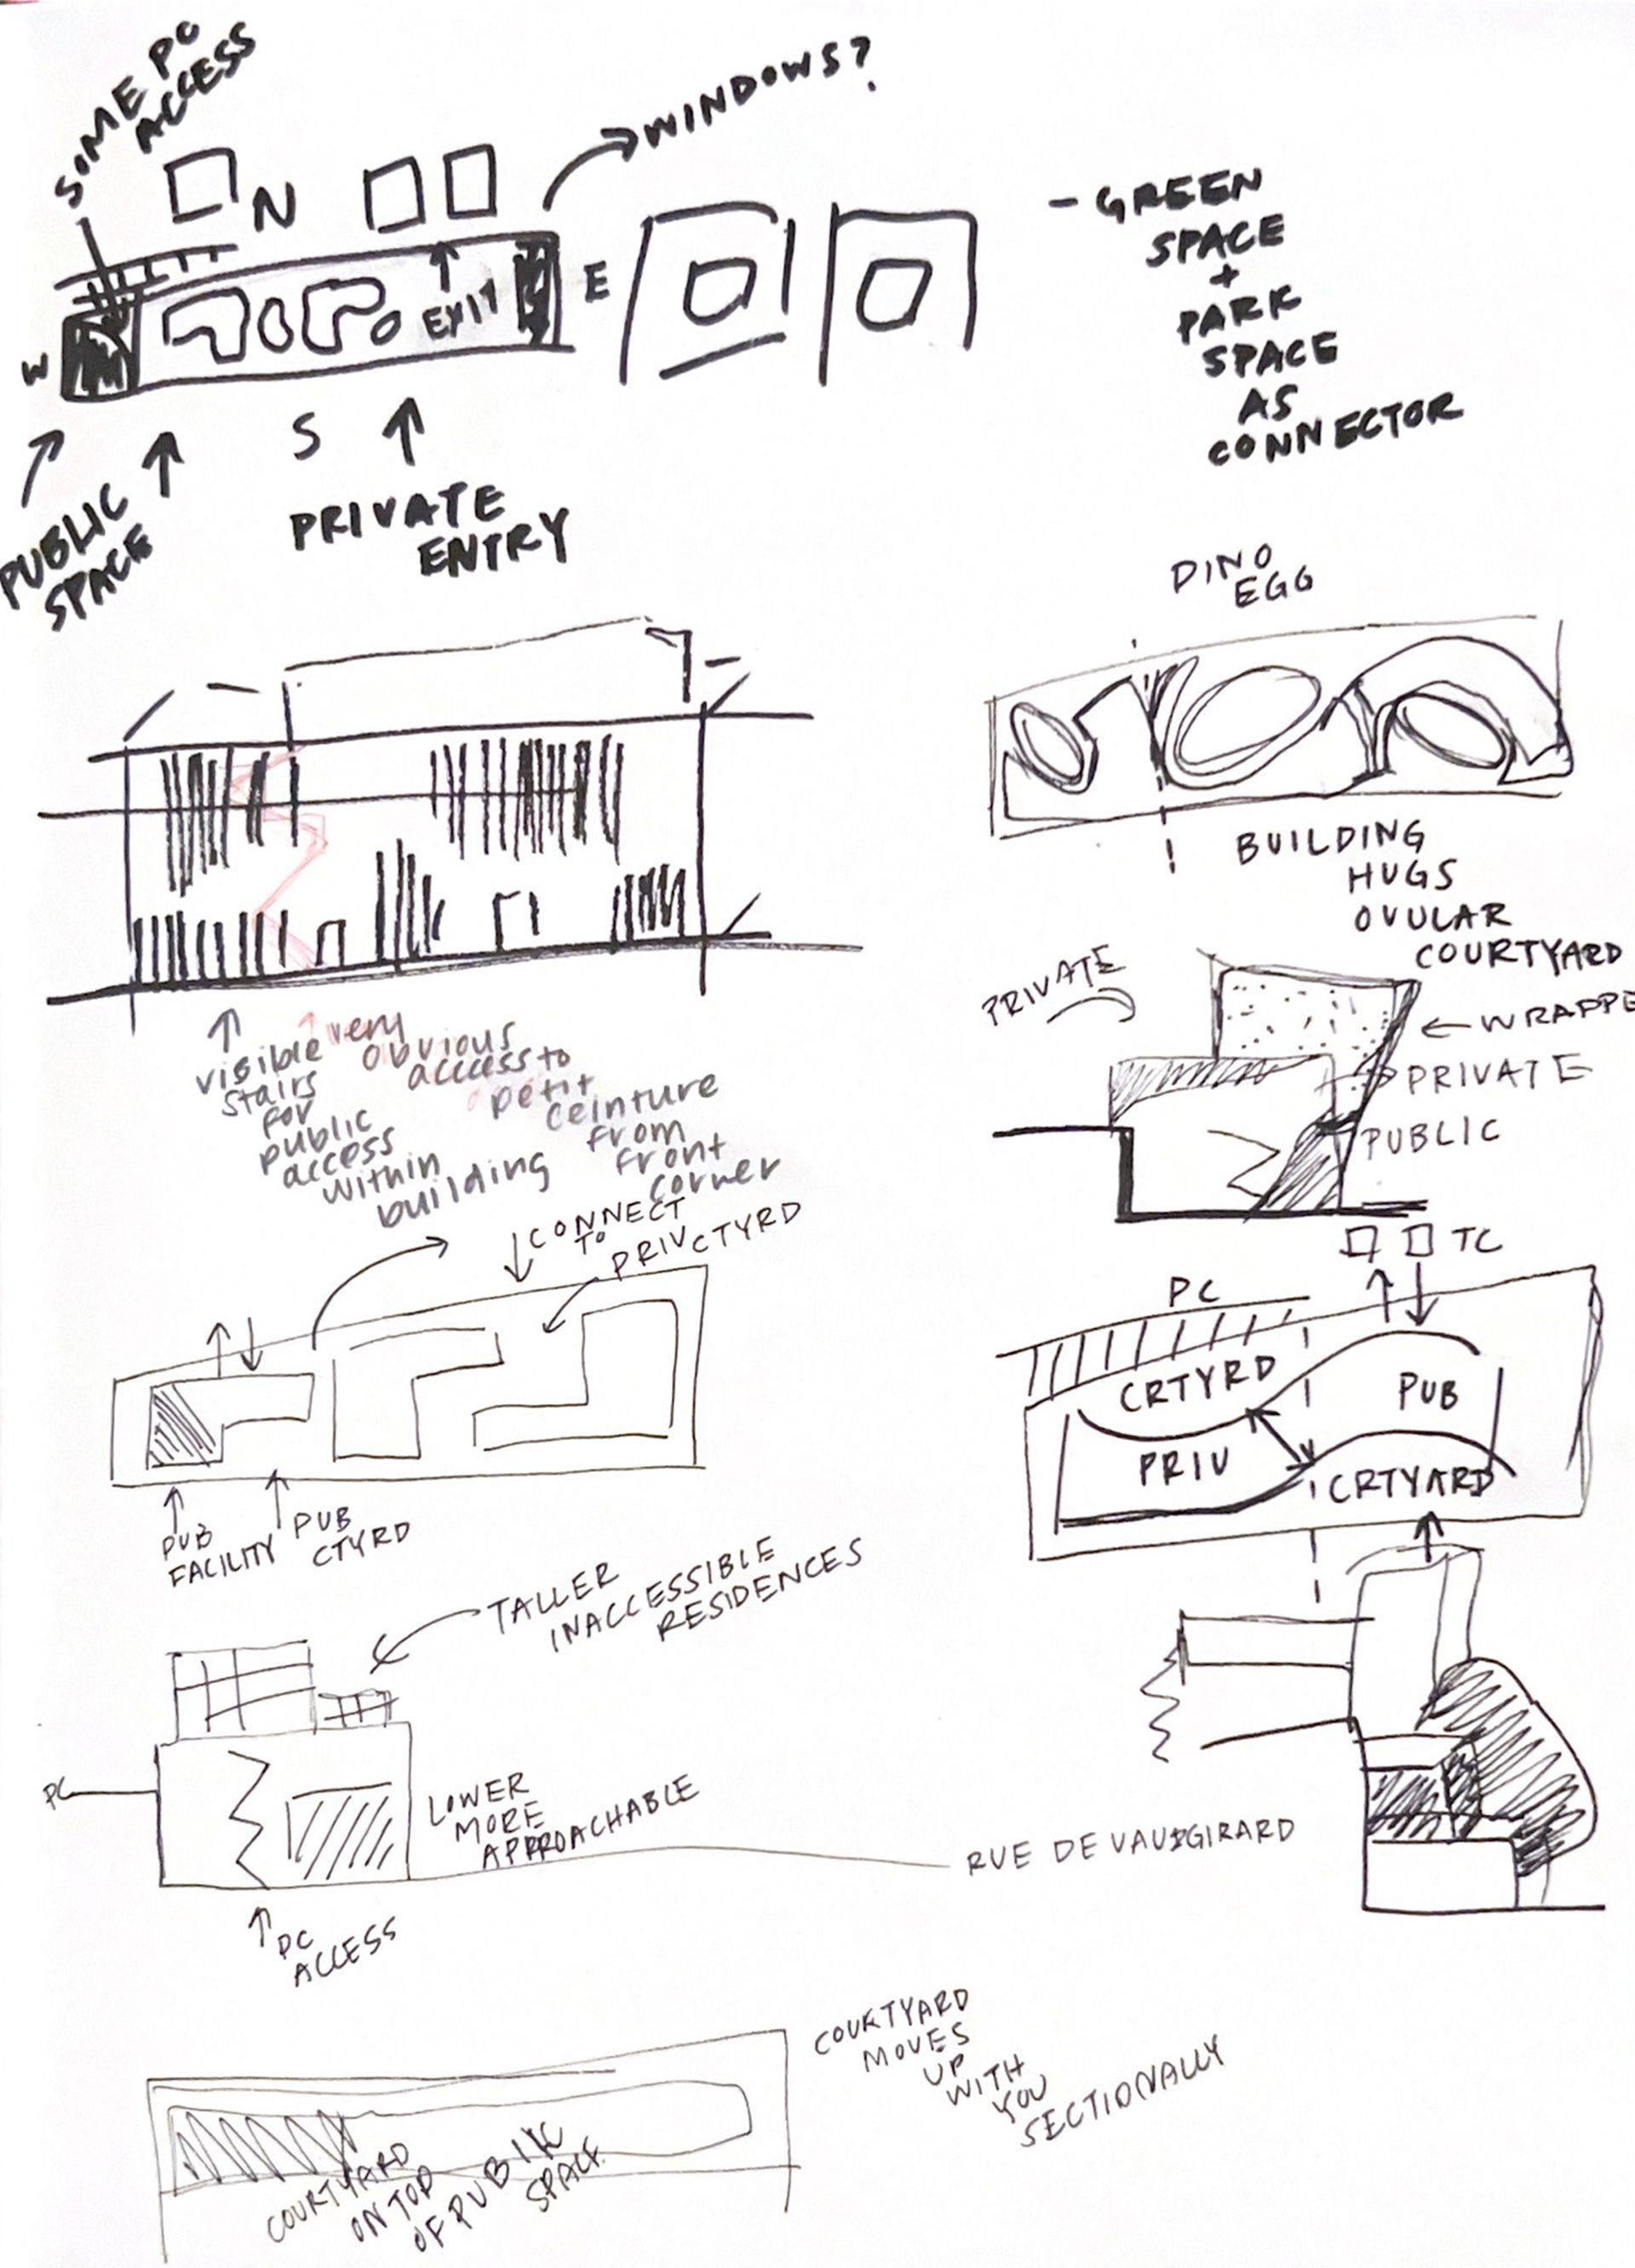 SOME PC
ACCESS
WINDOWS?
N
W
E
EXIT
S
PUBLIC
SPACE
PRIVATE
ENTRY
- GREEN
SPACE
+
PARK
SPACE
AS
CONNECTOR
DINO
EGG
BUILDING
HUGS
OVULAR
COURTYARD
visible
stairs
for
public
access
within
building
very
obvious
access to
petit
ceinture
from
front
corner
PRIVATE
WRAPPE
PRIVATE
PUBLIC
CONNECT
TO
PRIV CTYRD
PUB
FACILITY
PUB
CTYRD
TC
PC
CRTYRD
PUB
PRIV
CRTYARD
TALLER
INACCESSIBLE
RESIDENCES
PC
LOWER
MORE
APPROACHABLE
RUE DE VAUGIRARD
PC
ACCESS
COURTYARD
MOVES
UP
WITH
YOU
SECTIONALLY
COURTYARD
ON TOP
OF PUBLIC
SPACE